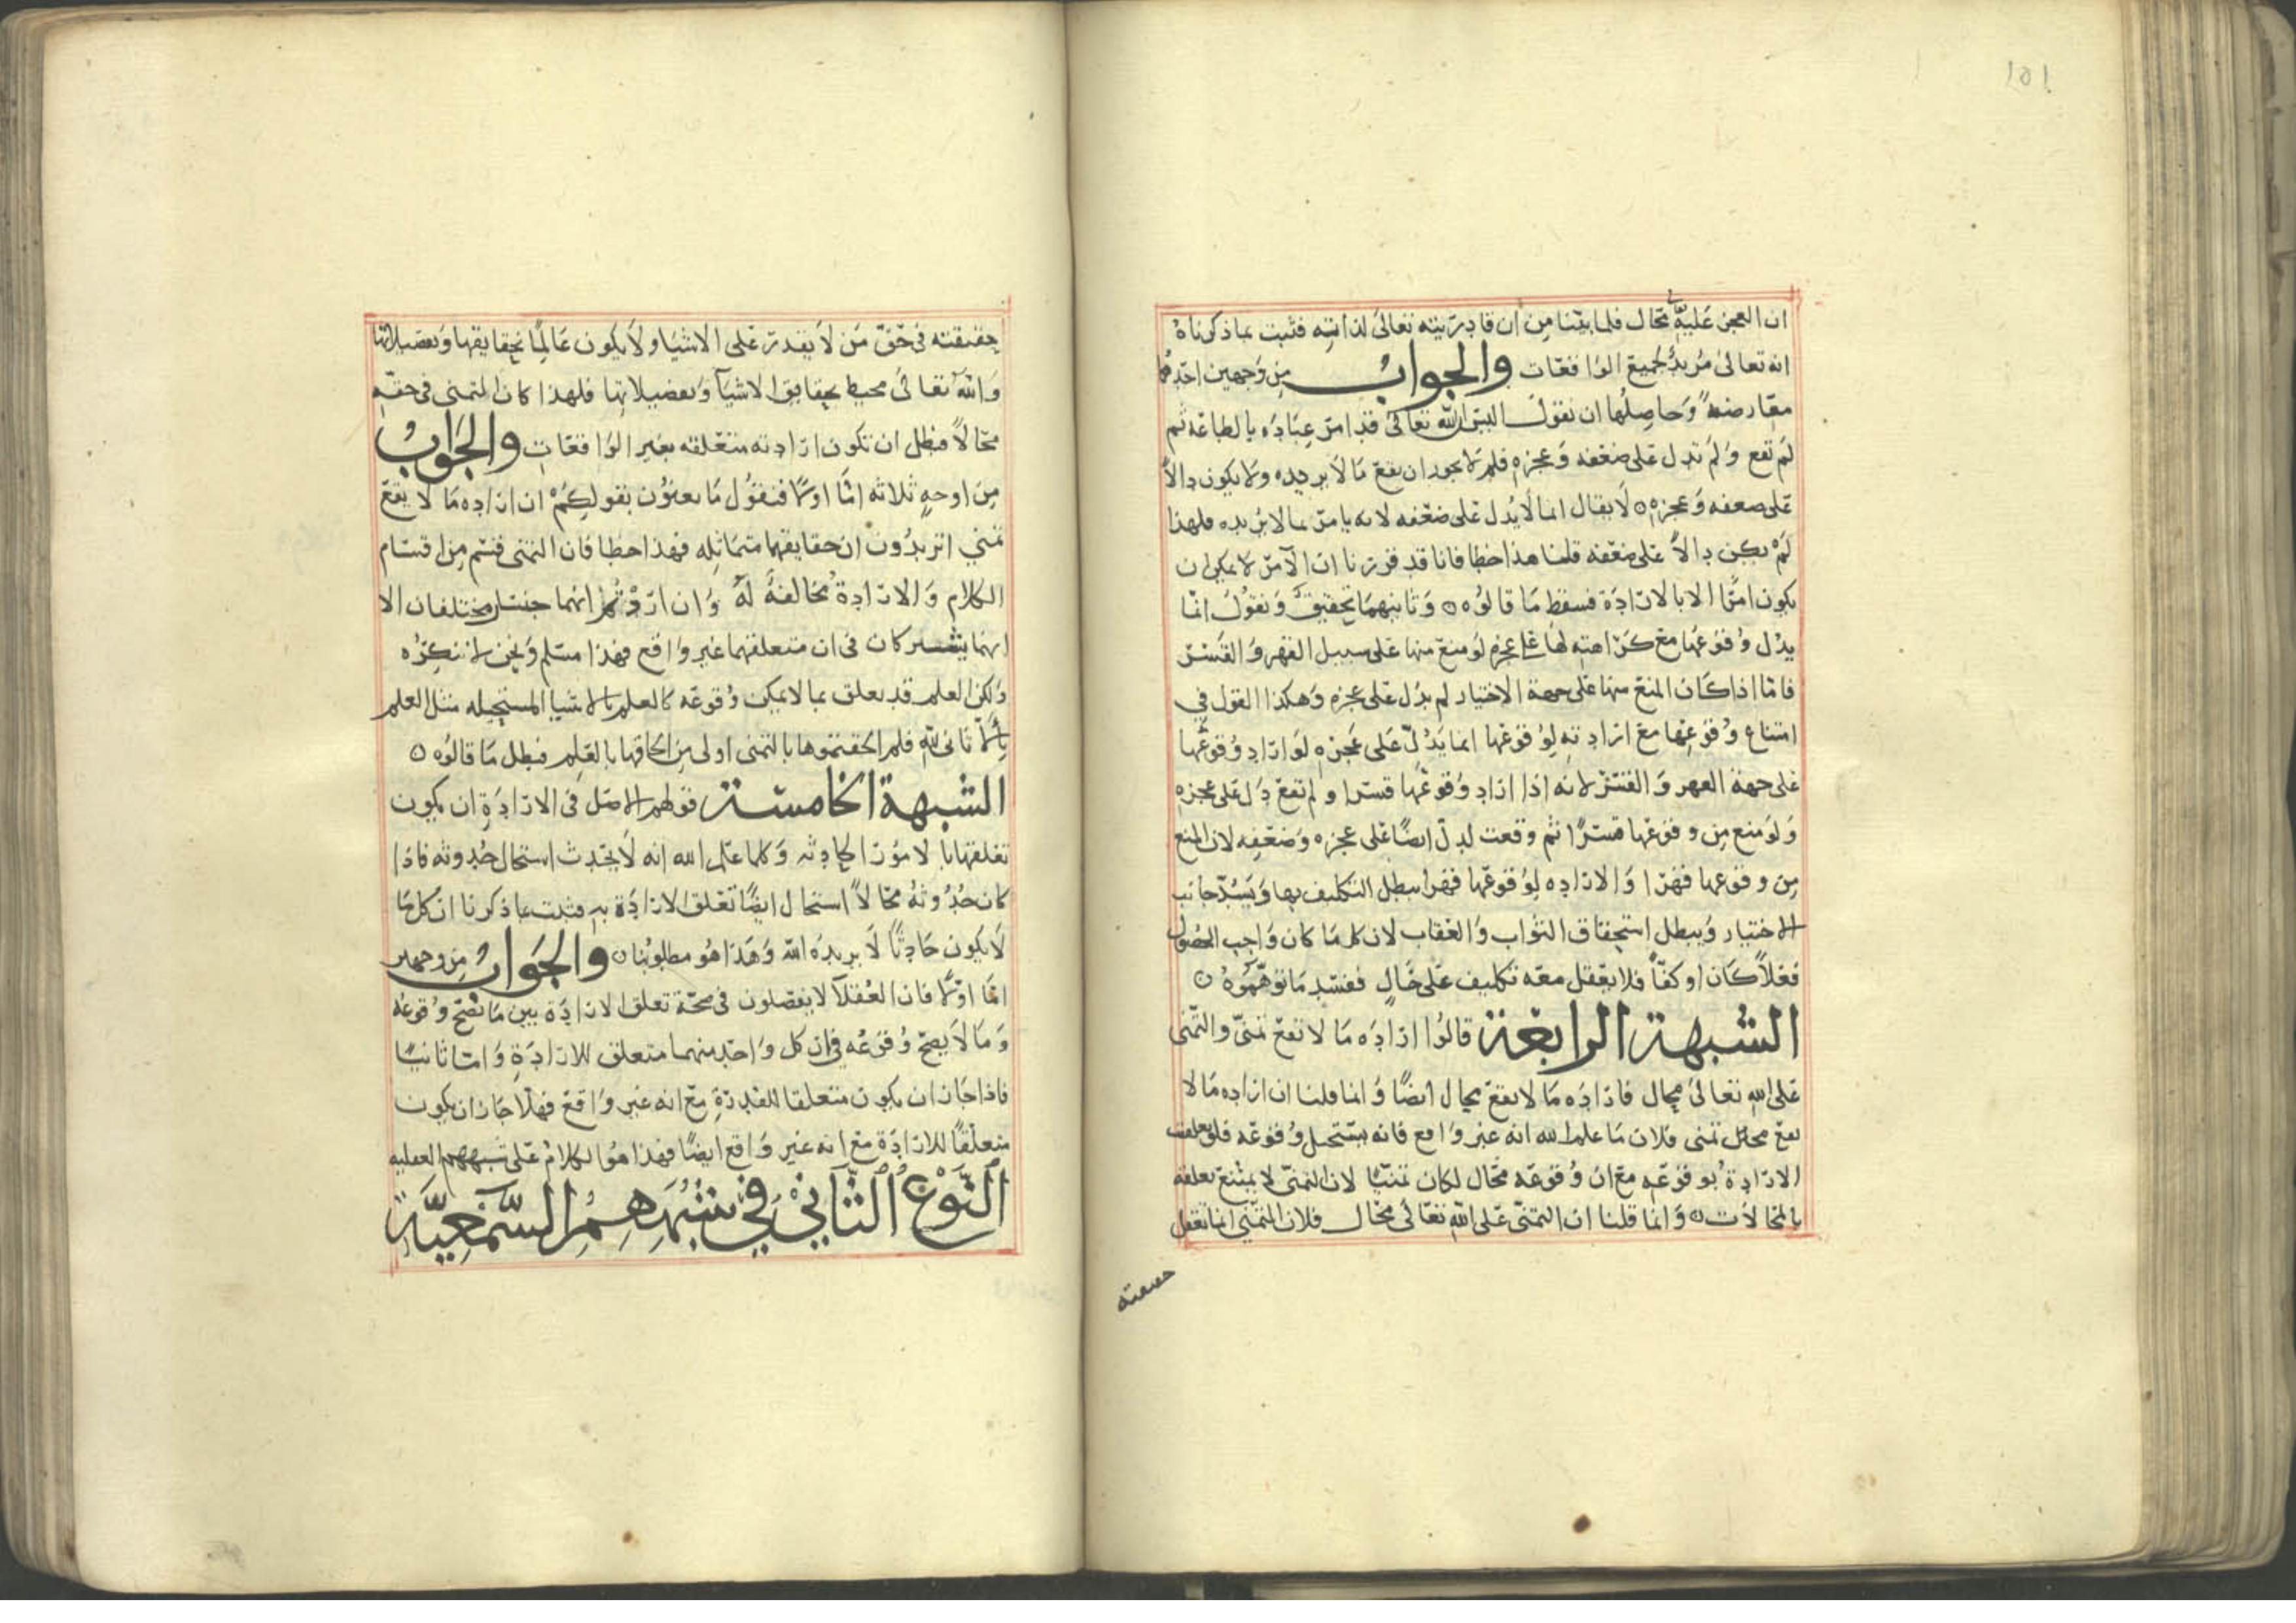 ١٥١
ان العجز عليه محال فلما بينا من ان قادريته تعالى لذاته فثبت بما ذكرناه
انه تعالى مريد لجميع الواقعات والجواب من وجهين احدهما
معارضة وحاصلها ان نقول اليس الله تعالى قد امر عباده بالطاعة ثم
لم تقع ولم تدل على ضعفه وعجزه فلم لا يجوز ان يقع ما لا يريده ولا يكون دالا
على ضعفه وعجزه ه لا يقال انما لا يدل على ضعفه لانه يامر بما لا يريده فلهذا
لم يكن دالا على ضعفه قلنا هذا خطا فانا قد قررنا ان الامر لا يمكن ان
يكون امرا الا بالارادة فسقط ما قالوه ه وثانيهما تحقيق ونقول انما
يدل وقوعها مع كراهته لها على عجزه لو منع منها على سبيل القهر والقسر
فاما اذا كان المنع منها على جهة الاختيار لم يدل على عجزه وهكذا القول في
امتناع وقوعها مع ارادته لوقوعها انما يدل على عجزه لو اراد وقوعها
على جهة القهر والقسر لانه اذا اراد وقوعها قسرا ولم تقع دل على عجزه
ولو منع من وقوعها قسرا ثم وقعت لدل ايضا على عجزه وضعفه لان المنع
من وقوعها قهرا والارادة لوقوعها قهرا يبطل التكليف بها ويسد جانب
الاختيار ويبطل استحقاق الثواب والعقاب لان كل ما كان واجب الحصول
فعلا كان او كفا فلا يعقل معه تكليف على حال ففسد ما توهموه ه
الشبهة الرابعة قالوا ارادة ما لا تقع تمني والتمني
على الله تعالى محال فارادة ما لا يقع محال ايضا وانما قلنا ان ارادة ما لا
يقع محال تمني فلان ما علم الله انه غير واقع فانه يستحيل وقوعه فلو تعلقت
الارادة بوقوعه مع ان وقوعه محال لكان تمنيا لان التمني لا يمتنع تعلقه
بالمحالات ه وانما قلنا ان التمني على الله تعالى محال فلان التمني انما يعقل
حقيقته
حقيقته في حق من لا يقدر على الاشيا ولا يكون عالما بحقايقها وتفصيلاتها
والله تعالى محيط بحقايق الاشيا وتفصيلاتها فلهذا كان التمني في حقه
محالا فبطل ان تكون ارادته متعلقه بغير الواقعات والجواب
من اوجه ثلاثه اما اولا فنقول ما يعنون بقولكم ان ارادة ما لا يقع
تمني اتريدون ان حقايقهما متماثله فهذا خطا فان التمني قسم من اقسام
الكلام والارادة مخالفة له وان اردتم انهما جنسان مختلفان الا
انهما يشتركان في ان متعلقهما غير واقع فهذا مسلم ونحن لا ننكره
ولكن العلم قد يعلق بما لا يمكن وقوعه كالعلم بالاشيا المستحيله مثل العلم
بألا ثاني لله فلم الحقتموها بالتمني اولى من الحاقها بالعلم فبطل ما قالوه ه
الشبهة الخامسة قولهم الاصل في الارادة ان يكون
تعلقها بالامور الحادثه وكلما علم الله انه لا يحدث استحال حدوثه فاذا
كان حدوثه محالا استحال ايضا تعلق الارادة به فثبت بما ذكرنا ان كل ما
لا يكون حادثا لا يريده الله وهذا هو مطلوبنا ه والجواب من وجهين
اما اولا فان العقلا لا يفصلون في صحة تعلق الارادة بين ما يصح وقوعه
وما لا يصح وقوعه في ان كل واحد منهما متعلق للارادة واما ثانيا
فاذا جاز ان يكون متعلقا للقدرة مع انه غير واقع فهلا جاز ان يكون
متعلقا للارادة مع انه غير واقع ايضا فهذا هو الكلام على شبههم العقليه
النوع الثاني في شبههم السمعية